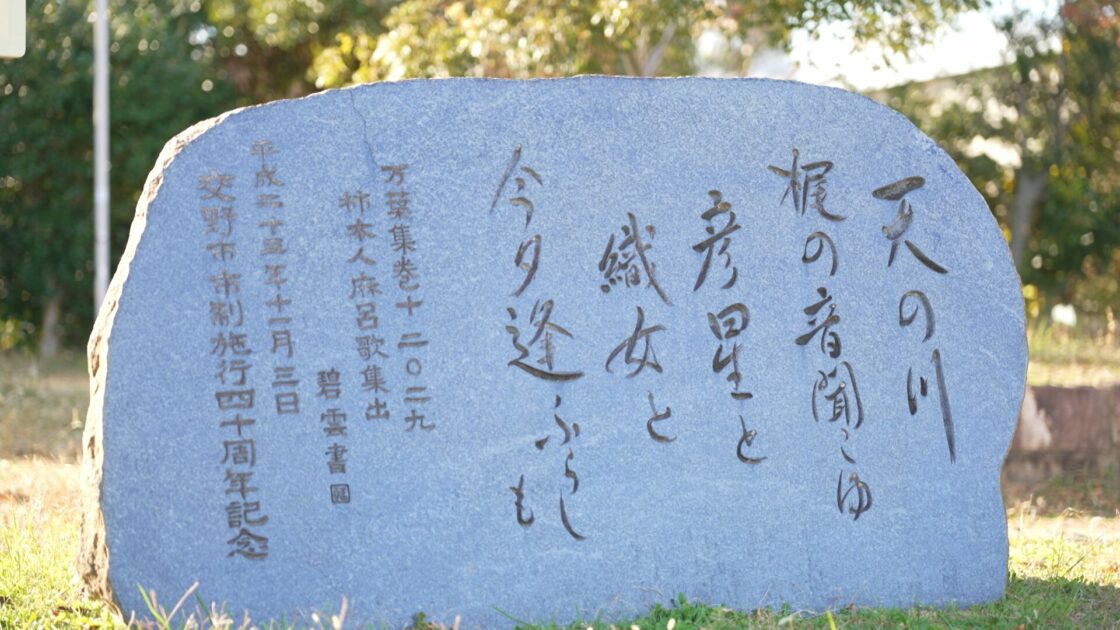 天の川
梶の音聞こゆ
彦星と
織女と
今夕逢ふらしも
万葉集巻十 二〇二九
柿本人麻呂歌集出
碧雲書
平成二十五年十一月三日
交野市市制施行四十周年記念